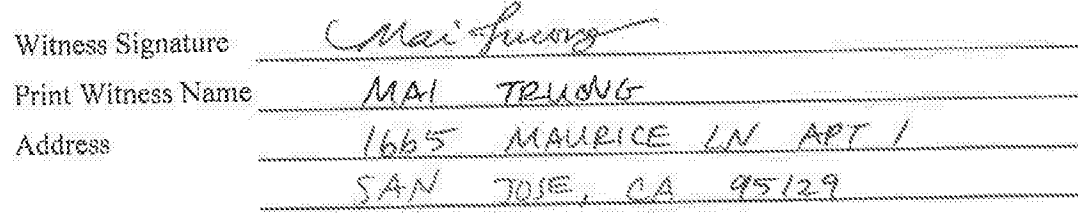 Witness Signature Mai Truong
Print Witness Name MAI TRUONG
Address 1665 MAURICE LN APT 1
SAN JOSE, CA 95129